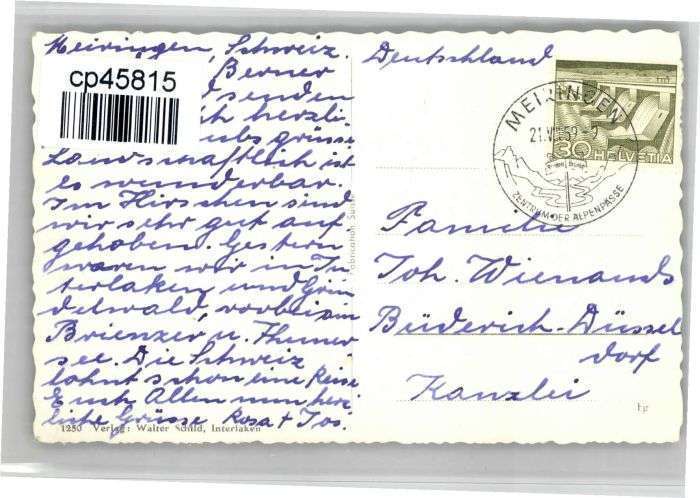 Meiringen, Schweiz.
cp45815
Berner
senden
ich herzli-
ubs grüsse
Landschaftlich ist
es wunderbar.
Im Hirschen sind
wir sehr gut auf
gehoben. Gestern
waren wir in In
terlaken und Grin
delwald, vorbei am
Brienzer u. Thuner
see. Die Schweiz
lohnt schon eine Reise
Euch Allen nun herz
liche Grüsse Rosa + Jos.
1250 Verlag: Walter Schild, Interlaken
Fabrication Suisse
Deutschland
MEIRINGEN
21.VII.59-9
ZENTRUM DER ALPENPÄSSE
30 HELVETIA
Familie
Joh. Wienands
Büderich-Düssel
dorf
Kanzlei